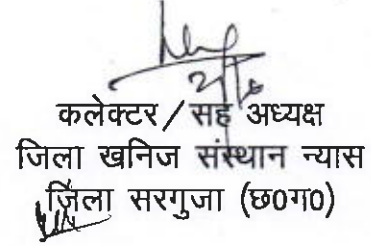 कलेक्टर/सह अध्यक्ष
जिला खनिज संस्थान न्यास
जिला सरगुजा (छ0ग0)